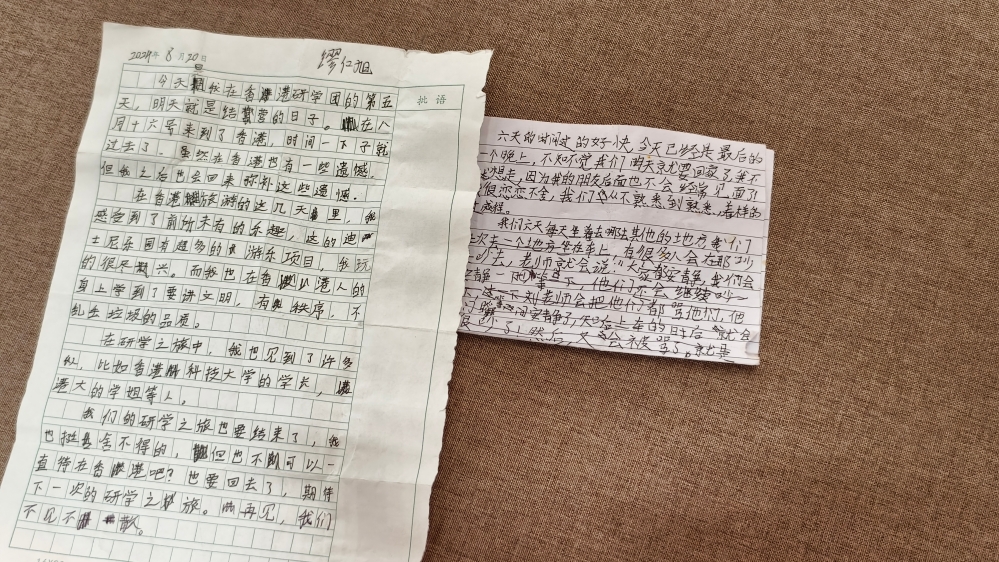 2024年8月20日
缪仁旭
批语
今天是我在香港研学团的第五
天，明天就是结营的日子。在八
月十六号来到了香港，时间一下子就
过去了，虽然在香港也有一些遗憾，
但我之后也会回来弥补这些遗憾。
在香港旅游的这几天里，我
感受到了前所未有的乐趣，这的迪
士尼乐园有超多的游乐项目，我玩
的很尽兴。而我也在香港人的
身上学到了要讲文明，有秩序，不
乱丢垃圾的品质。
在研学之旅中，我也见到了许多
人，比如香港科技大学的学长，
港大的学姐等人。
我们的研学之旅也要结束了，我
也挺是舍不得的，但也不可以一
直待在香港吧？也要回去了，期待
下一次的研学之旅。再见，我们
不见不散。
六天的时间过的好快，今天已经是最后的
一个晚上，不知不觉我们明天就要回家了我不
想走，因为我的朋友后面也不会经常见面了
很恋恋不舍，我们从不熟来到熟悉，
过程。
我们六天每天坐着去哪去其他的地方我们
次去一个地方坐在车上，有很多人会在那吵
去，老师就会说："大家都安静，我们会
安静一两下，他们不会继续吵
这下刘老师会把他们都骂他们，他
们 安静了， 在上车的时后 就会
了，然后 会被骂了。就是